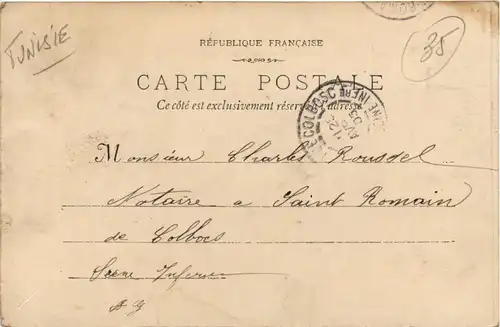 TUNISIE
35
RÉPUBLIQUE FRANÇAISE
CARTE POSTALE
Ce côté est exclusivement réservé à l'adresse
COLBOSC
INFRE
03
Monsieur Charles Roussel
Notaire a Saint Romain
de Colbocs
Seine Inferieure